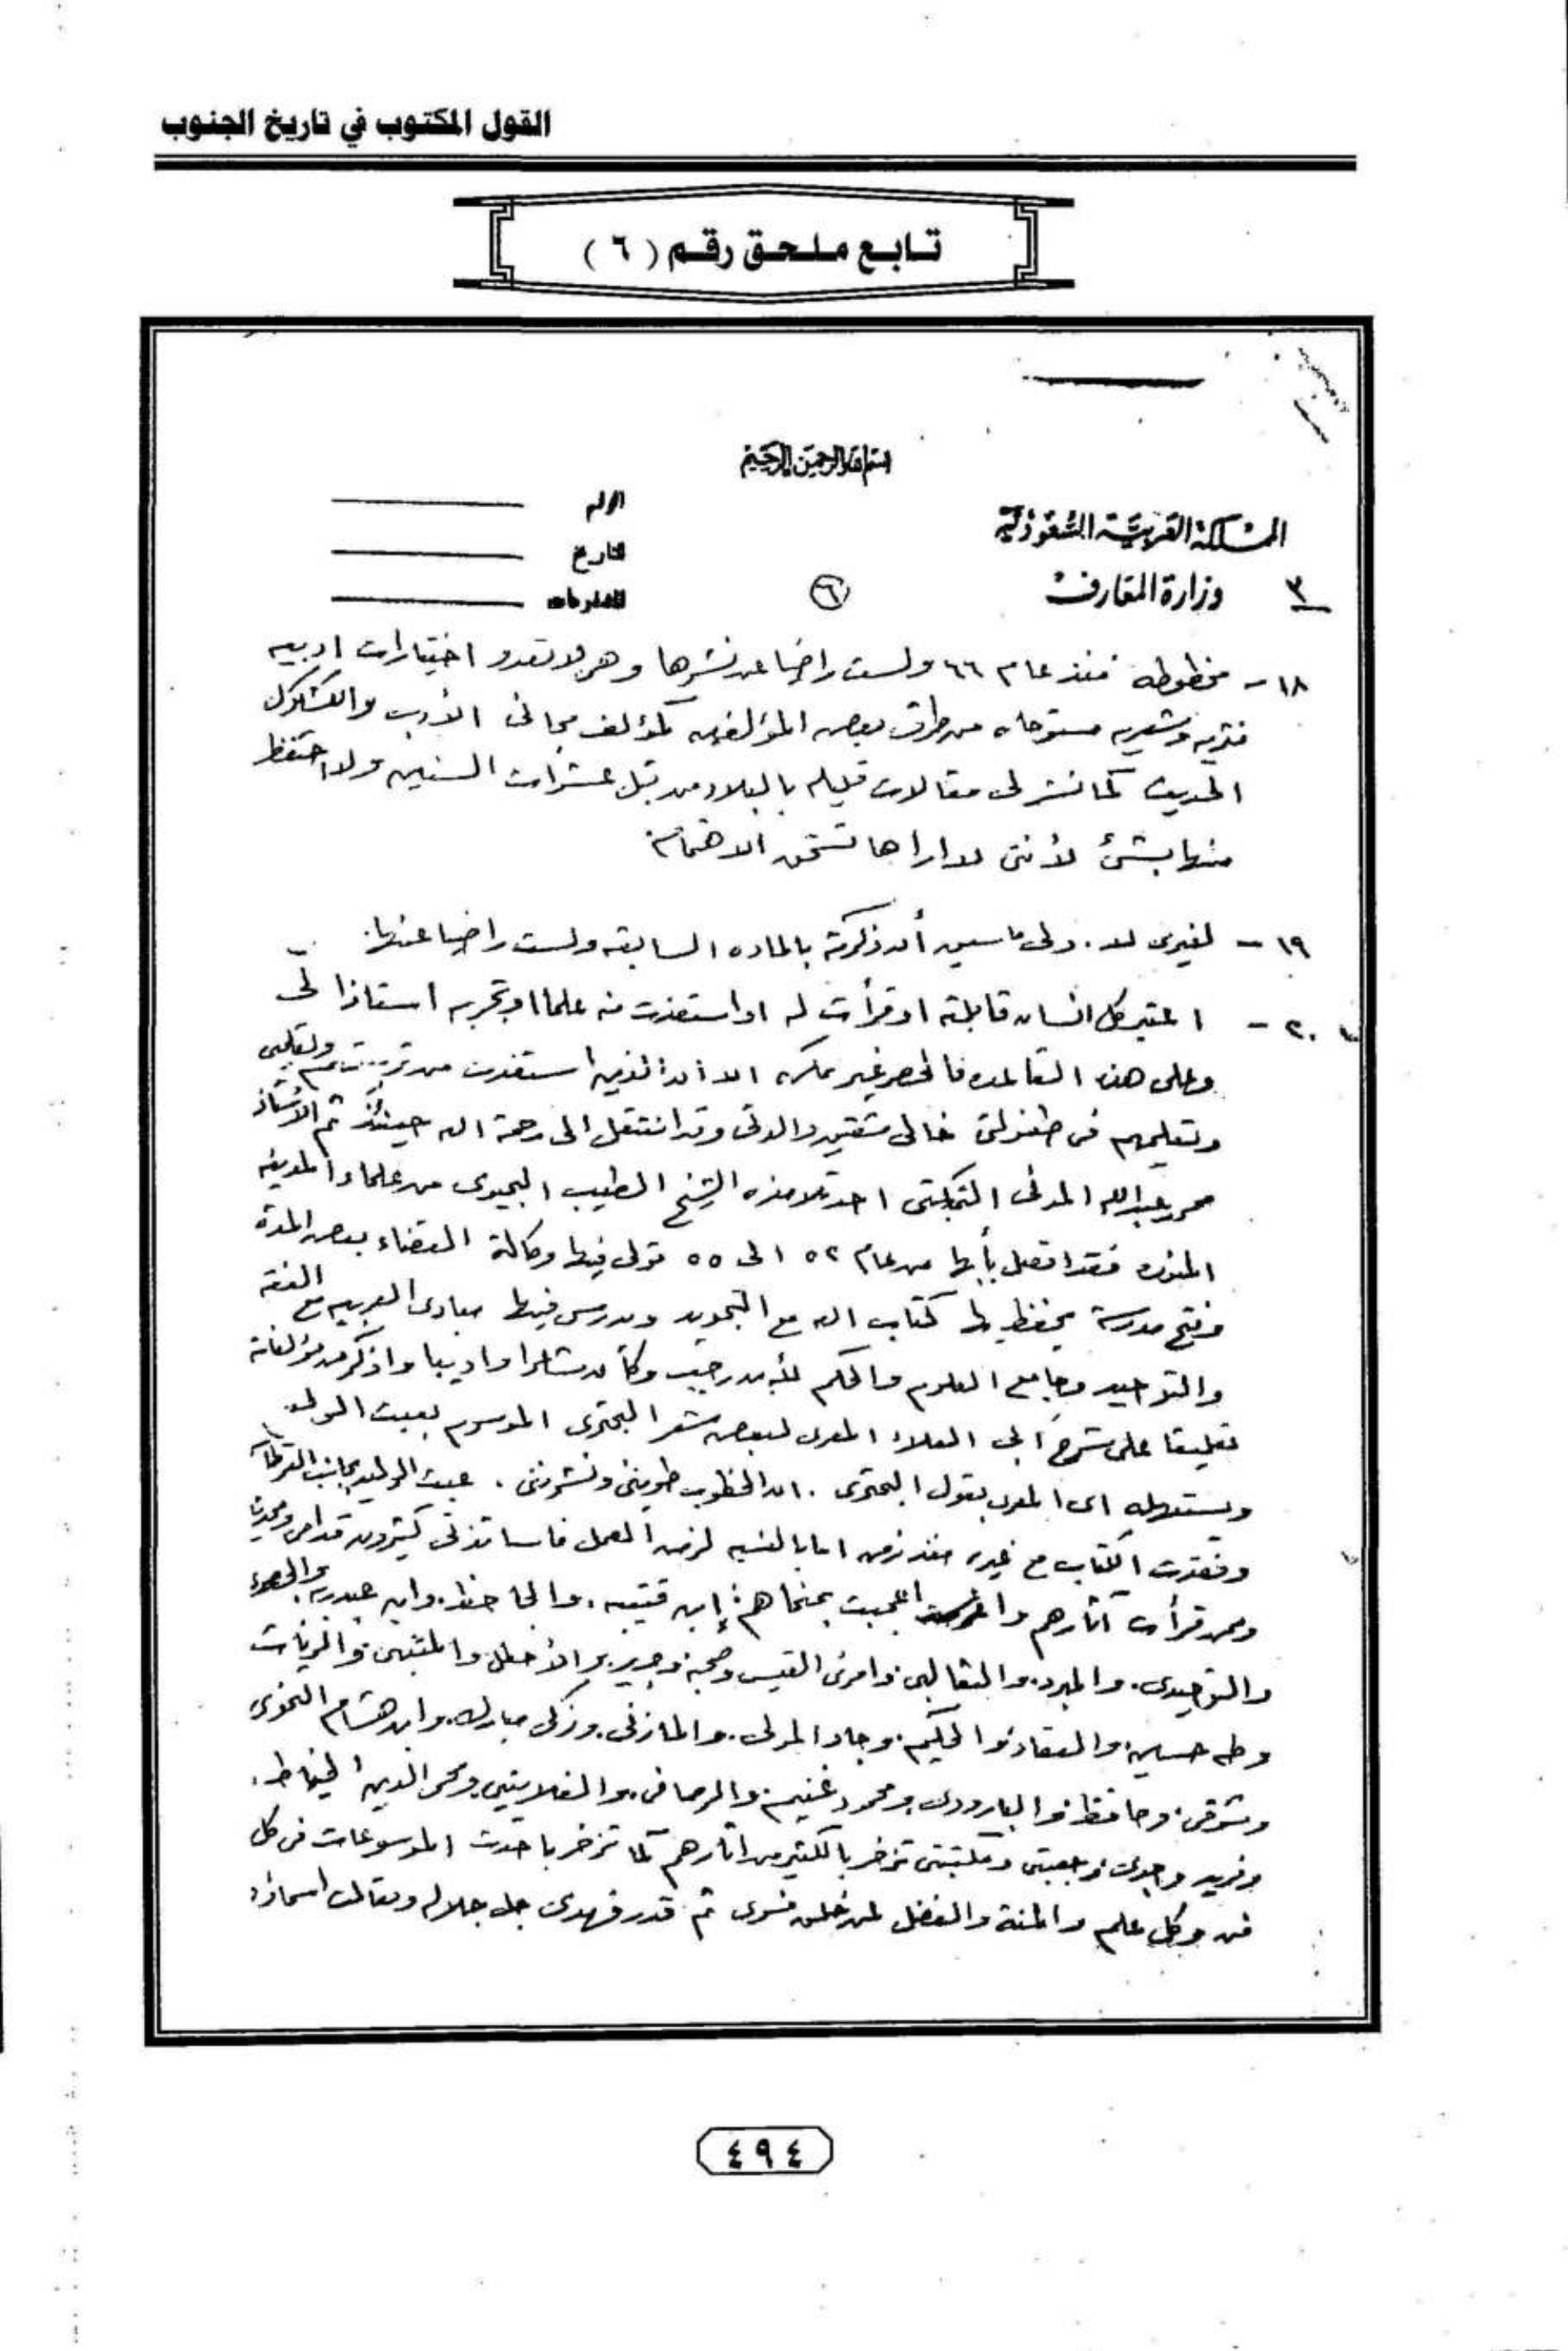 القول المكتوب في تاريخ الجنوب
تابع ملحق رقم (٦)
بسم الله الرحمن الرحيم
المملكة العربية السعودية
وزارة المعارف
٣
الرقم
التاريخ
المشفوعات
٦
١٨ - مخطوطه منذ عام ٦٦ ولست راضيا عن نشرها وهى لا تعدو اختيارات ادبيه
نثريه وشعريه مستوحاه من طرق بعض المؤلفين كمؤلف مجانى الأدب والكشكول
الحديث كما نشر لى مقالات قليله بالبلاد من قبل عشرات السنين ولا احتفظ
منها بشئ لأننى لا اراها تستحق الاهتمام
١٩ - لغيرى لا. ولى ما سبق أن ذكرته بالماده السابقه ولست راضيا عنها.
٢٠ - اعتبر كل انسان قابلته او قرأت له او استفدت منه علما او تجربه استاذا لى
وعلى هذه القاعده فالحصر غير ممكن الا ان الذين استفدت من
وتعليمهم فى طفولتى خالى شقيق والدتى وقد انتقل الى رحمة الله حينئذ ثم الأستاذ
محمد عبدالله المدنى التنبكتى احد تلامذه الشيخ الطيب من علماء المدينه
المنوره فقد اتصل بأبها من عام ٥٢ الى ٥٥ تولى فيها وكالة القضاء بعض المدة
وفتح مدرسة يحفظ بها كتاب الله مع التجويد ويدرس فيها مبادئ العربيه مع الفقه
والتوحيد وجامع العلوم والحكم لأبن رجب وكان شاعرا واديبا واذكر من مؤلفاته
تعليقا على شرح أبى العلاء المعرى لبعض شعر البحترى الموسوم بعبث الوليد
ويستهله اى المعرى بقول البحترى . ان الخطوب طويننى ونشرننى . عبث الوليد بجانب القرطاس
وفقدت الكتاب مع غيره منذ زمن اما بالنسبه لزمن العمل فاساتذتى كثيرون قدامى ومحدثين
وممن قرأت آثارهم واعجبت بمنحاهم : ابن قتيبه . والجاحظ . وابن عبدربه .
والتوحيدى . والمبرد . والثعالبى . وامرئ القيس وصحبه وجرير والأخطل والمتنبى والزيات
وطه حسين . والعقاد . والحكيم . وجاد المولى . والمازنى . وزكى مبارك . وابن هشام النحوى
وشوقى . وحافظ . والبارودى . ومحمود غنيم . والرصافى . والغلايينى . ومحى الدين الخياط .
وفريد وجدى . ومكتبتى تزخر بالكثير من اثارهم كما تزخر باحدث الموسوعات فى كل
فن وكل علم والمنة والفضل لمن خلق فسوى ثم قدر فهدى جل جلاله وتعالت اسماؤه
٤٩٤